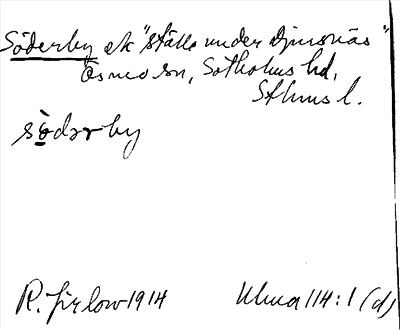 Söderby ek "ställe under Djursnäs"
Ösmo sn, Sotholms hd,
Sthms l.
södərby
R. Jirlow 1914 Ulma 114:1 (d)